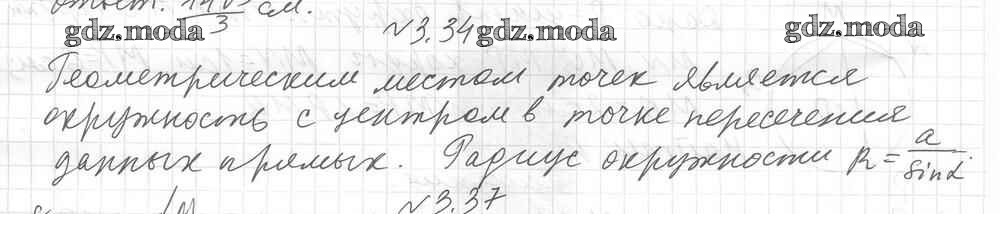 ответ. 14√3/3 см.
gdz.moda №3.34 gdz.moda gdz.moda
Геометрическим местом точек является
окружность с центром в точке пересечения
данных прямых. Радиус окружности R = a/sinα.
№3.37